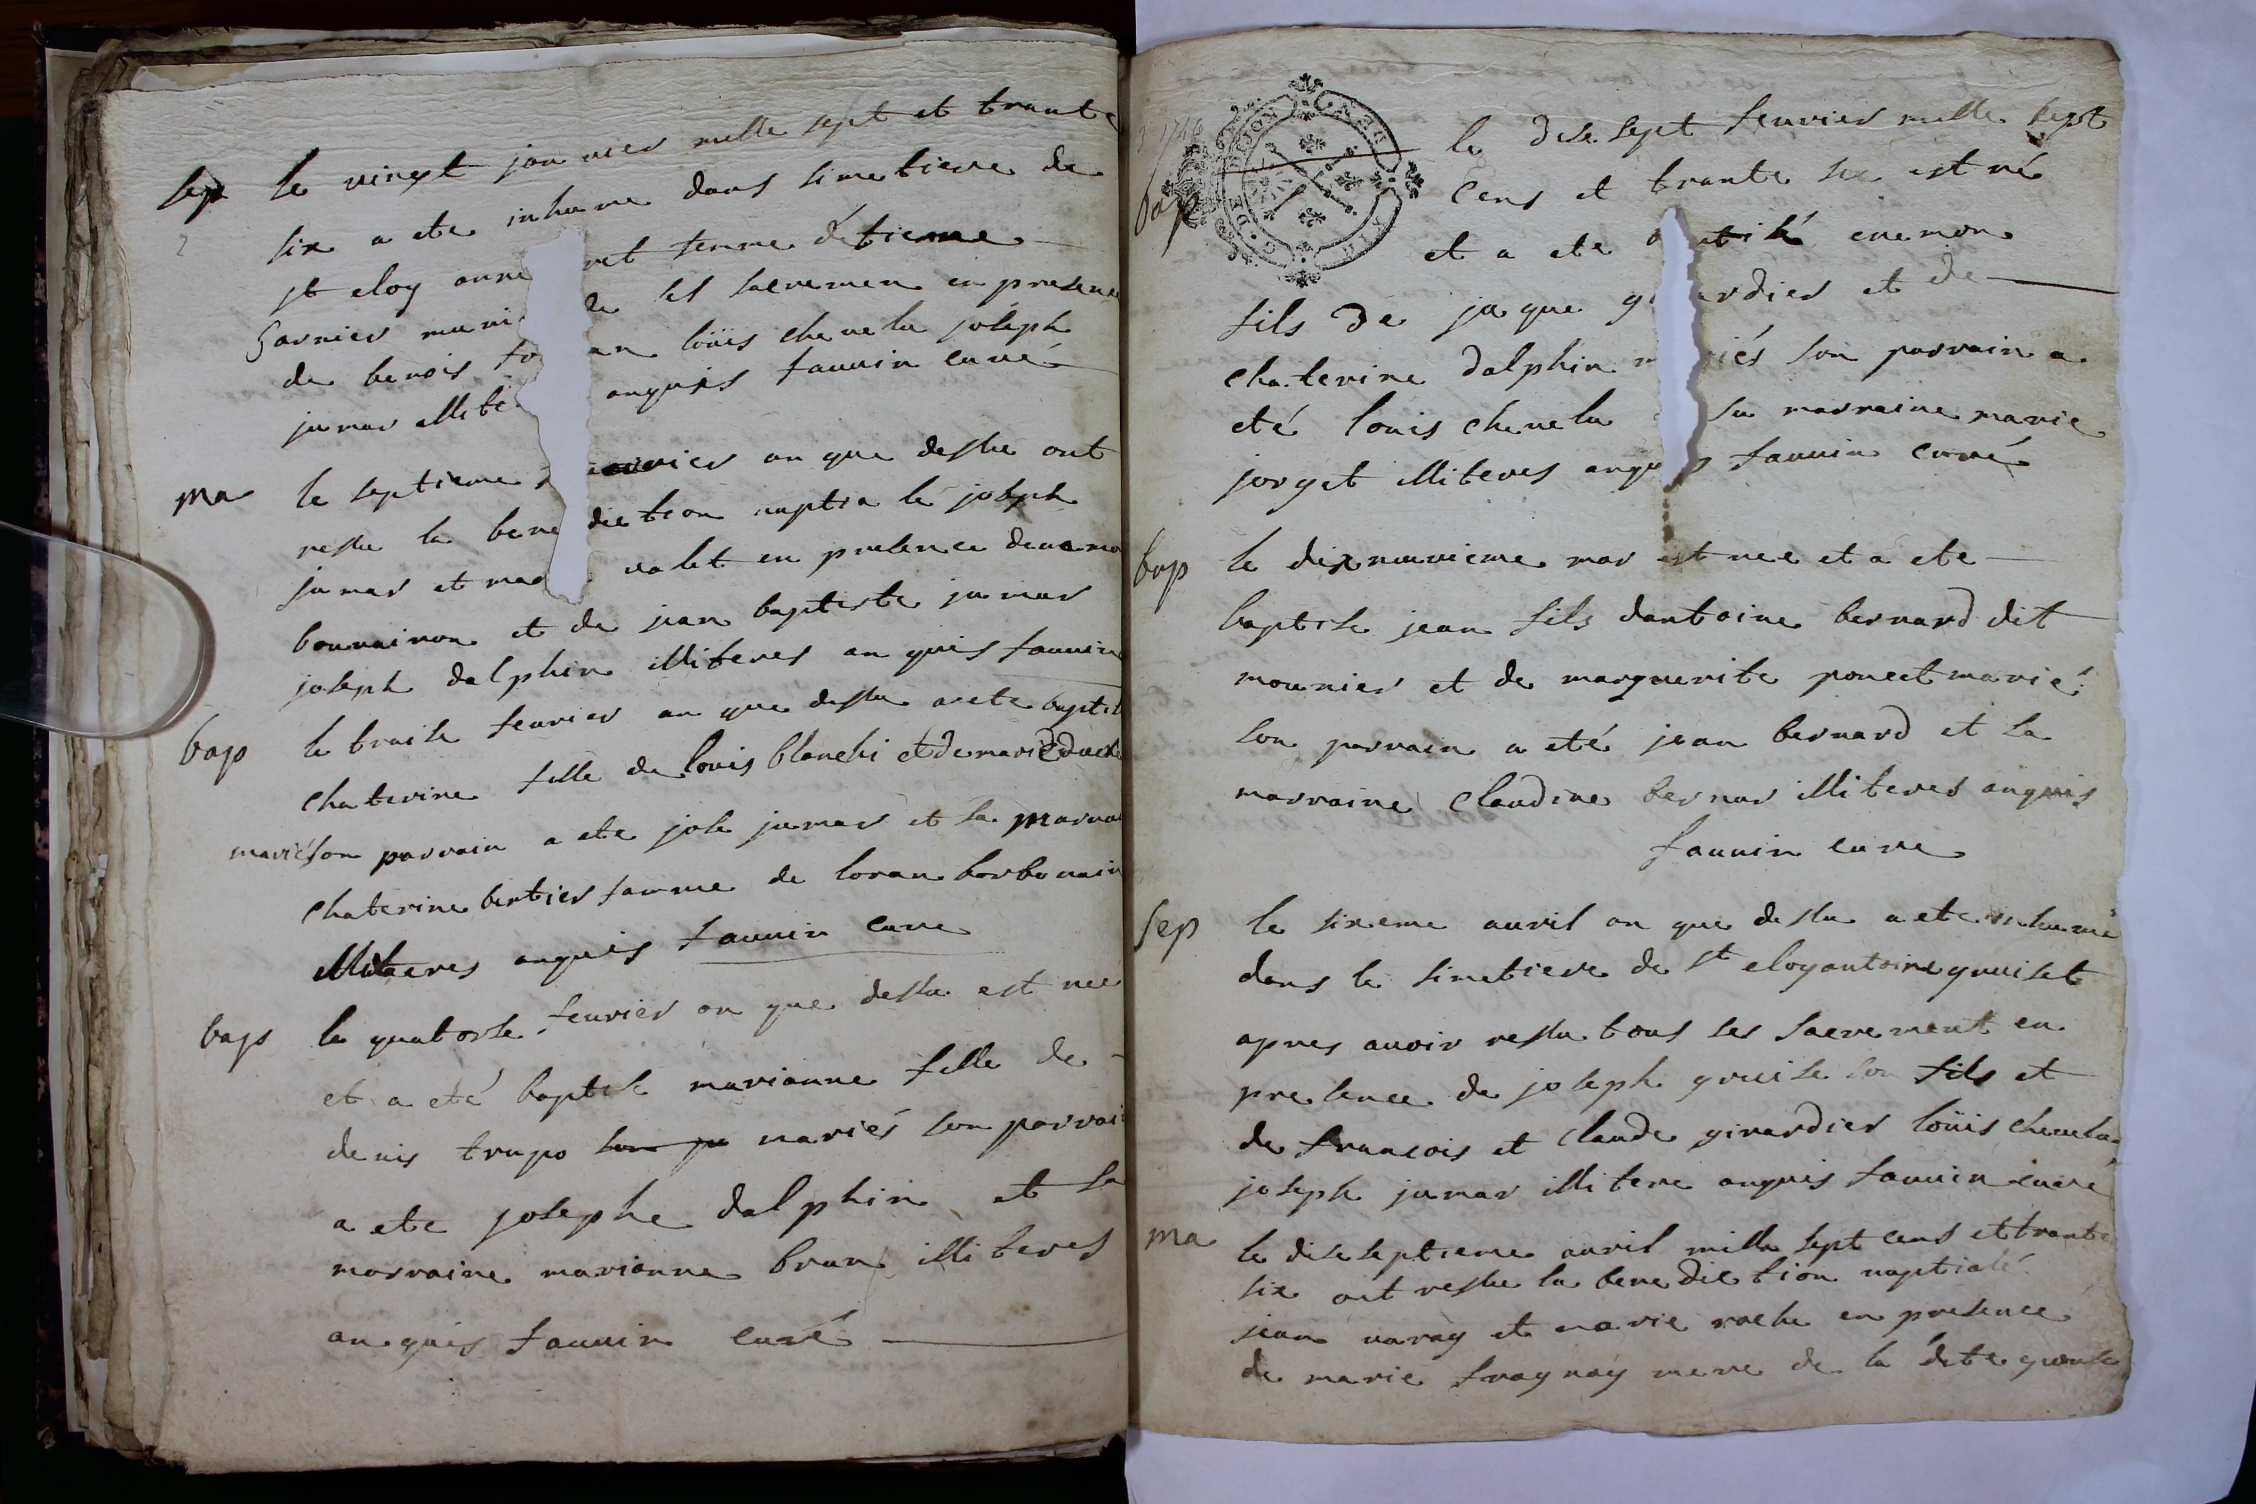 sep le vingt janvier mille sept et trante
six a ete inhume dans simetiere de
st eloy anne ret femme détienne
Garnier muni de ses sacremen en presence
de benois fo an loüis chevelu joseph
jumar illite anquis fauvin curé
ma le septieme vrier an que dessu ont
ressu la bene diction nuptia le joseph
jumar et mar valet en presence
bonnainon et de jean baptiste jumar
joseph dalphin illiteres an quis fauvin
bap le traise feuvier an que dessu a ete baptis
chaterine fille de louis blanchi et de marie
marié son parrain a ete jose jumar et sa marrai
chaterine bertier famme de loran borbonain
illiteres anquis fauvin cure
bap le quatorse feuvier an que dessu est nee
et a eté baptise marianne fille de
denis trupo mariés son parrai
a ete josephe dalphin et sa
marraine marianne brun illiteres
an quis fauvin curé
bap le dise sept feuvier mille sept
cens et trante six est né
et a ete b tisé enemon
fils de jaque gi ardier et de
chaterine dalphin m riés son parrain a
eté louis chevelu sa marraine marie
jorget illiteres anqu s fauvin curé
bap le dixneuvieme mar est nee et a ete
baptise jean fils dantoine bernard dit
mounier et de marguerite poncet marié
son parrain a eté jean bernard et sa
marraine claudine bernar illiteres anquis
fauvin cure
sep le sixeme avril an que dessu a ete inhumé
dans le simetiere de st eloy antoine gruiset
apres avoir ressu tous ses sacrement en
presence de joseph gruise son fils et
de francois et claude girardier loüis chevelu
joseph jumar illitere anquis fauvin cure
ma le diseseptieme avril mille sept cens et trante
six ont ressu la benediction nuptialé
jean varay et marie roche en presence
de marie fragnay mere de la dite